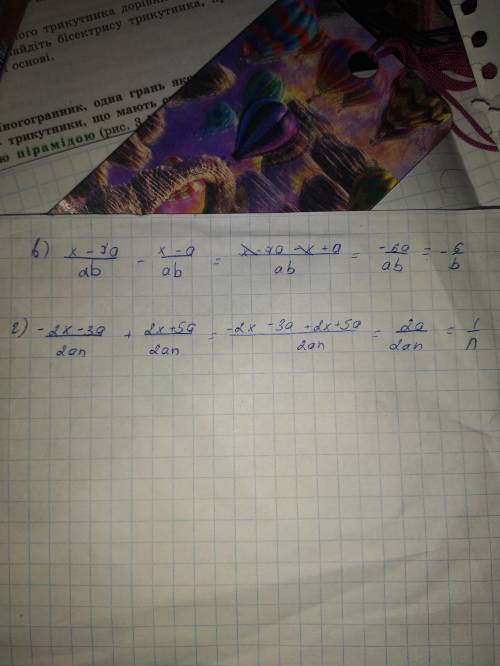 ного трикутника дорівн
найдіть бісектрису трикутника,
основі.
ногогранник, одна грань яко
трикутники, що мають
ю пірамідою (рис. 3
в) (x - 7a)/(ab) - (x - a)/(ab) = (x - 7a - x + a)/(ab) = (-6a)/(ab) = - 6/b
г) (-2x - 3a)/(2an) + (2x + 5a)/(2an) = (-2x - 3a + 2x + 5a)/(2an) = (2a)/(2an) = 1/n